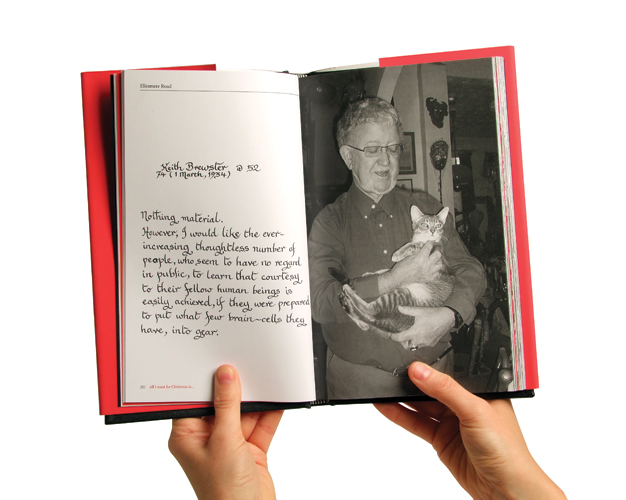 Ellesmere Road
Keith Brewster @ 52
74 (1 March, 1934)
Nothing material.
However, I would like the ever-
increasing, thoughtless number of
people, who seem to have no regard
in public, to learn that courtesy
to their fellow human beings is
easily achieved, if they were prepared
to put what few brain-cells they
have, into gear.
All I want for Christmas is...